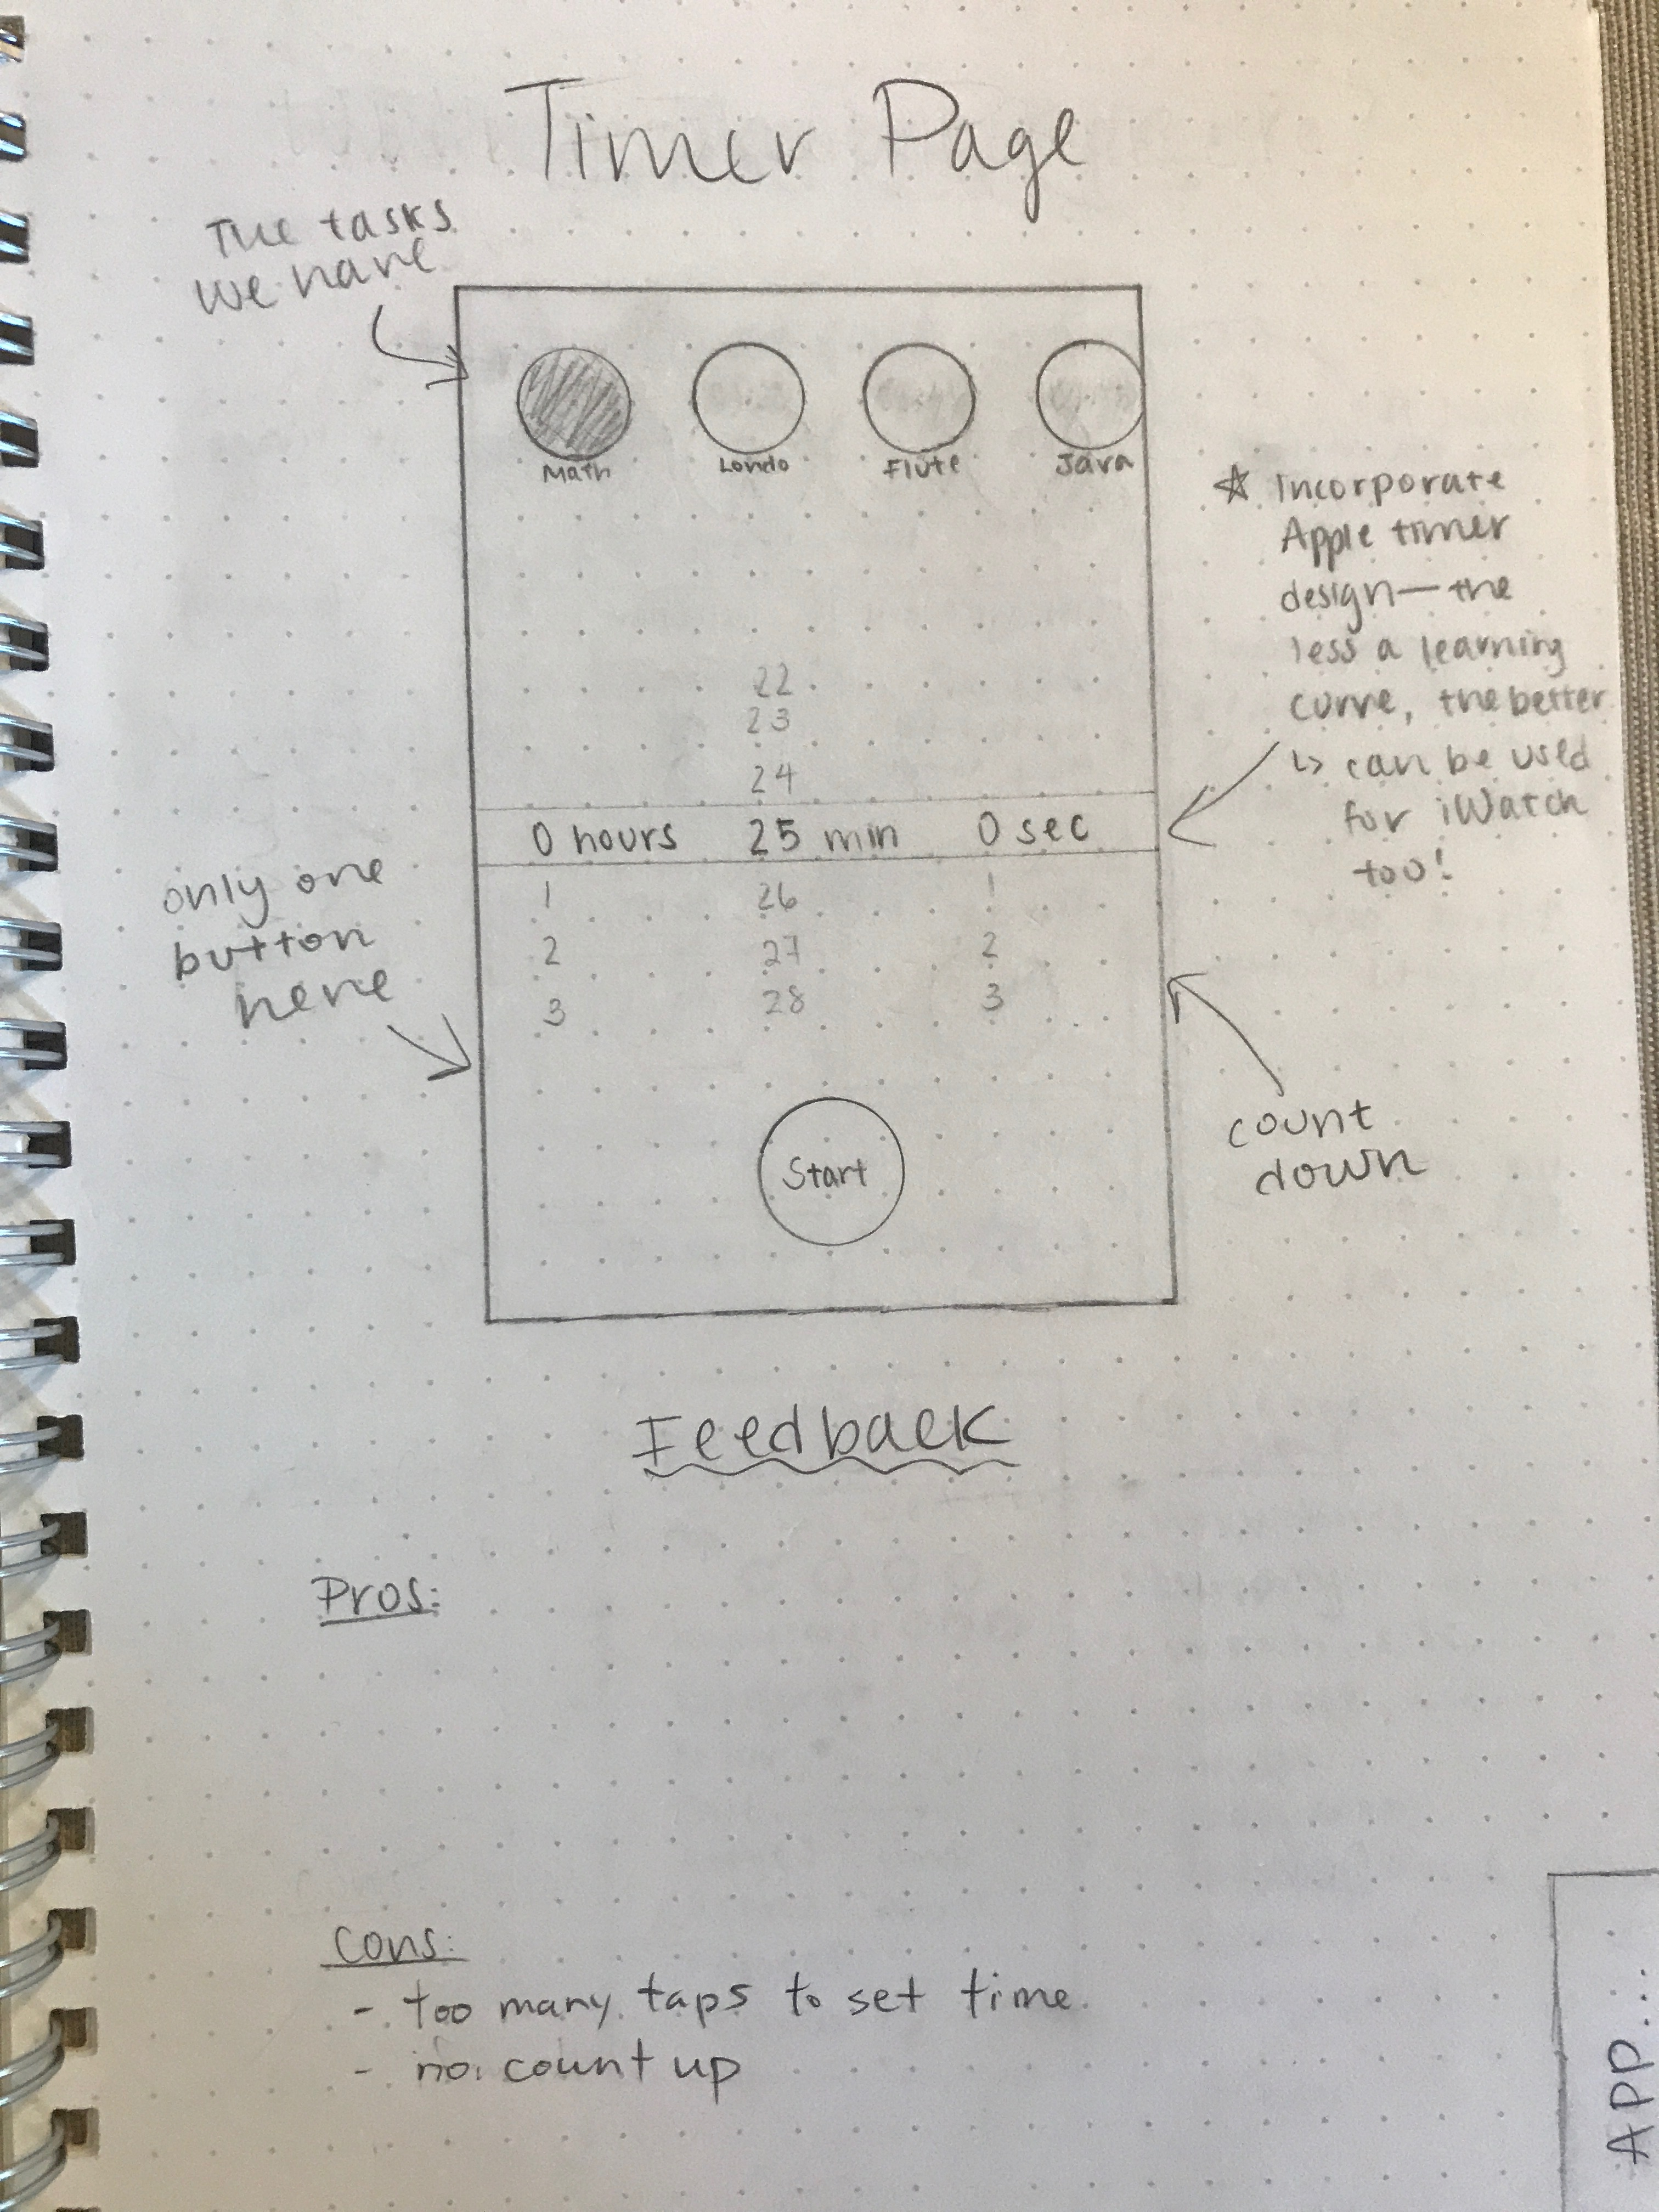 Timer Page
The tasks
we have
Math Londo Flute Java
☆ Incorporate
Apple timer
design—the
less a learning
curve, the better
↳ can be used
for iWatch
too!
22
23
24
0 hours 25 min 0 sec
1 26 1
2 27 2
3 28 3
only one
button
here
Start
count
down
Feedback
Pros:
Cons:
- too many taps to set time
- no count up
APP...